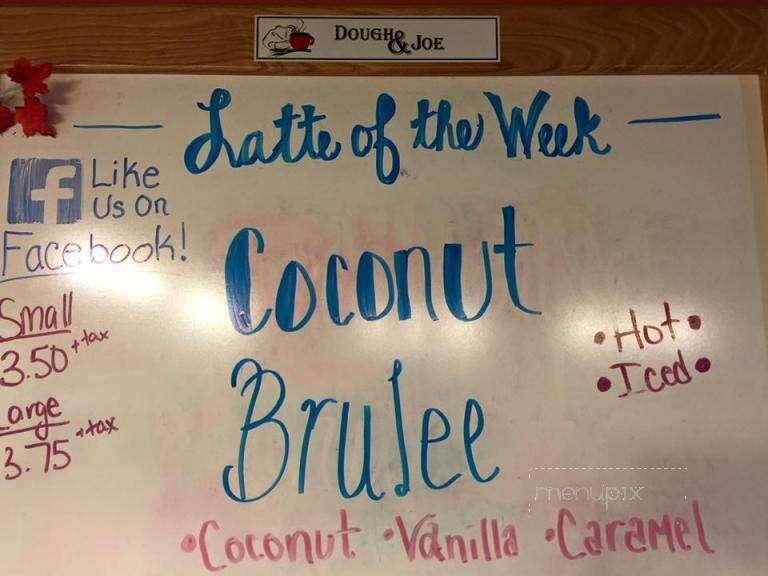 Dough & Joe
Latte of the Week
f Like
Us On
Facebook!
Coconut
Small
3.50 + tax
• Hot •
• Iced •
Large
3.75 + tax
Brulee
menupix
• Coconut • Vanilla • Caramel